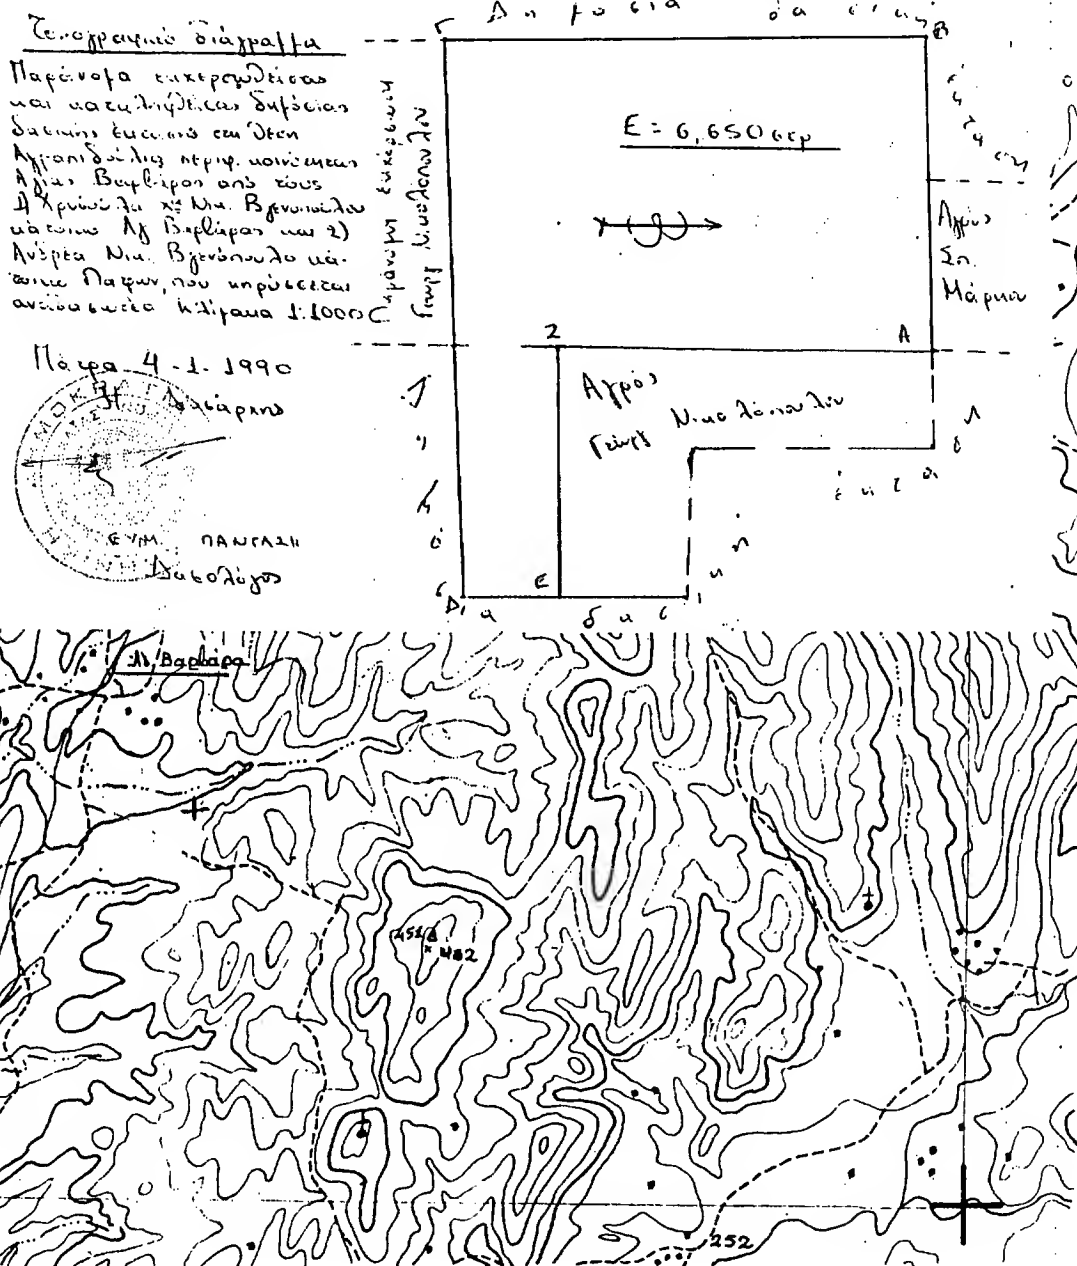 Τοπογραφικό διάγραμμα
Παράνομα εκχερσωθείσας
και καταληφθείσας δημόσιας
δασικής έκτασης στη θέση
περιφ. κοινότητας
Αγίας Βαρβάρας από τους
1) Νικ. Βγενοπούλου
κάτοικο Αγ Βαρβάρας και 2)
Ανδρέα Νικ. Βγενόπουλο κά-
τοικο Πατρών, που κηρύσσεται
αναδασωτέα Κλίμακα 1:1000
Πάτρα 4-1-1990
Η Δασάρχης
ΕΥΜ. ΠΑΝΤΑΖΗ
Δασολόγος
Δημόσια δασική
έκταση
Γ
Β
Παράνομη εκχέρσωση
Γεωργ Νικολόπουλου
Ε = 6,650 στρ
Αγρός
Σπ.
Μάρκου
Ζ
Α
Αγρός
Γεωργ Νικολόπουλου
Δ
Ε
Αγ Βαρβάρα
451
452
252